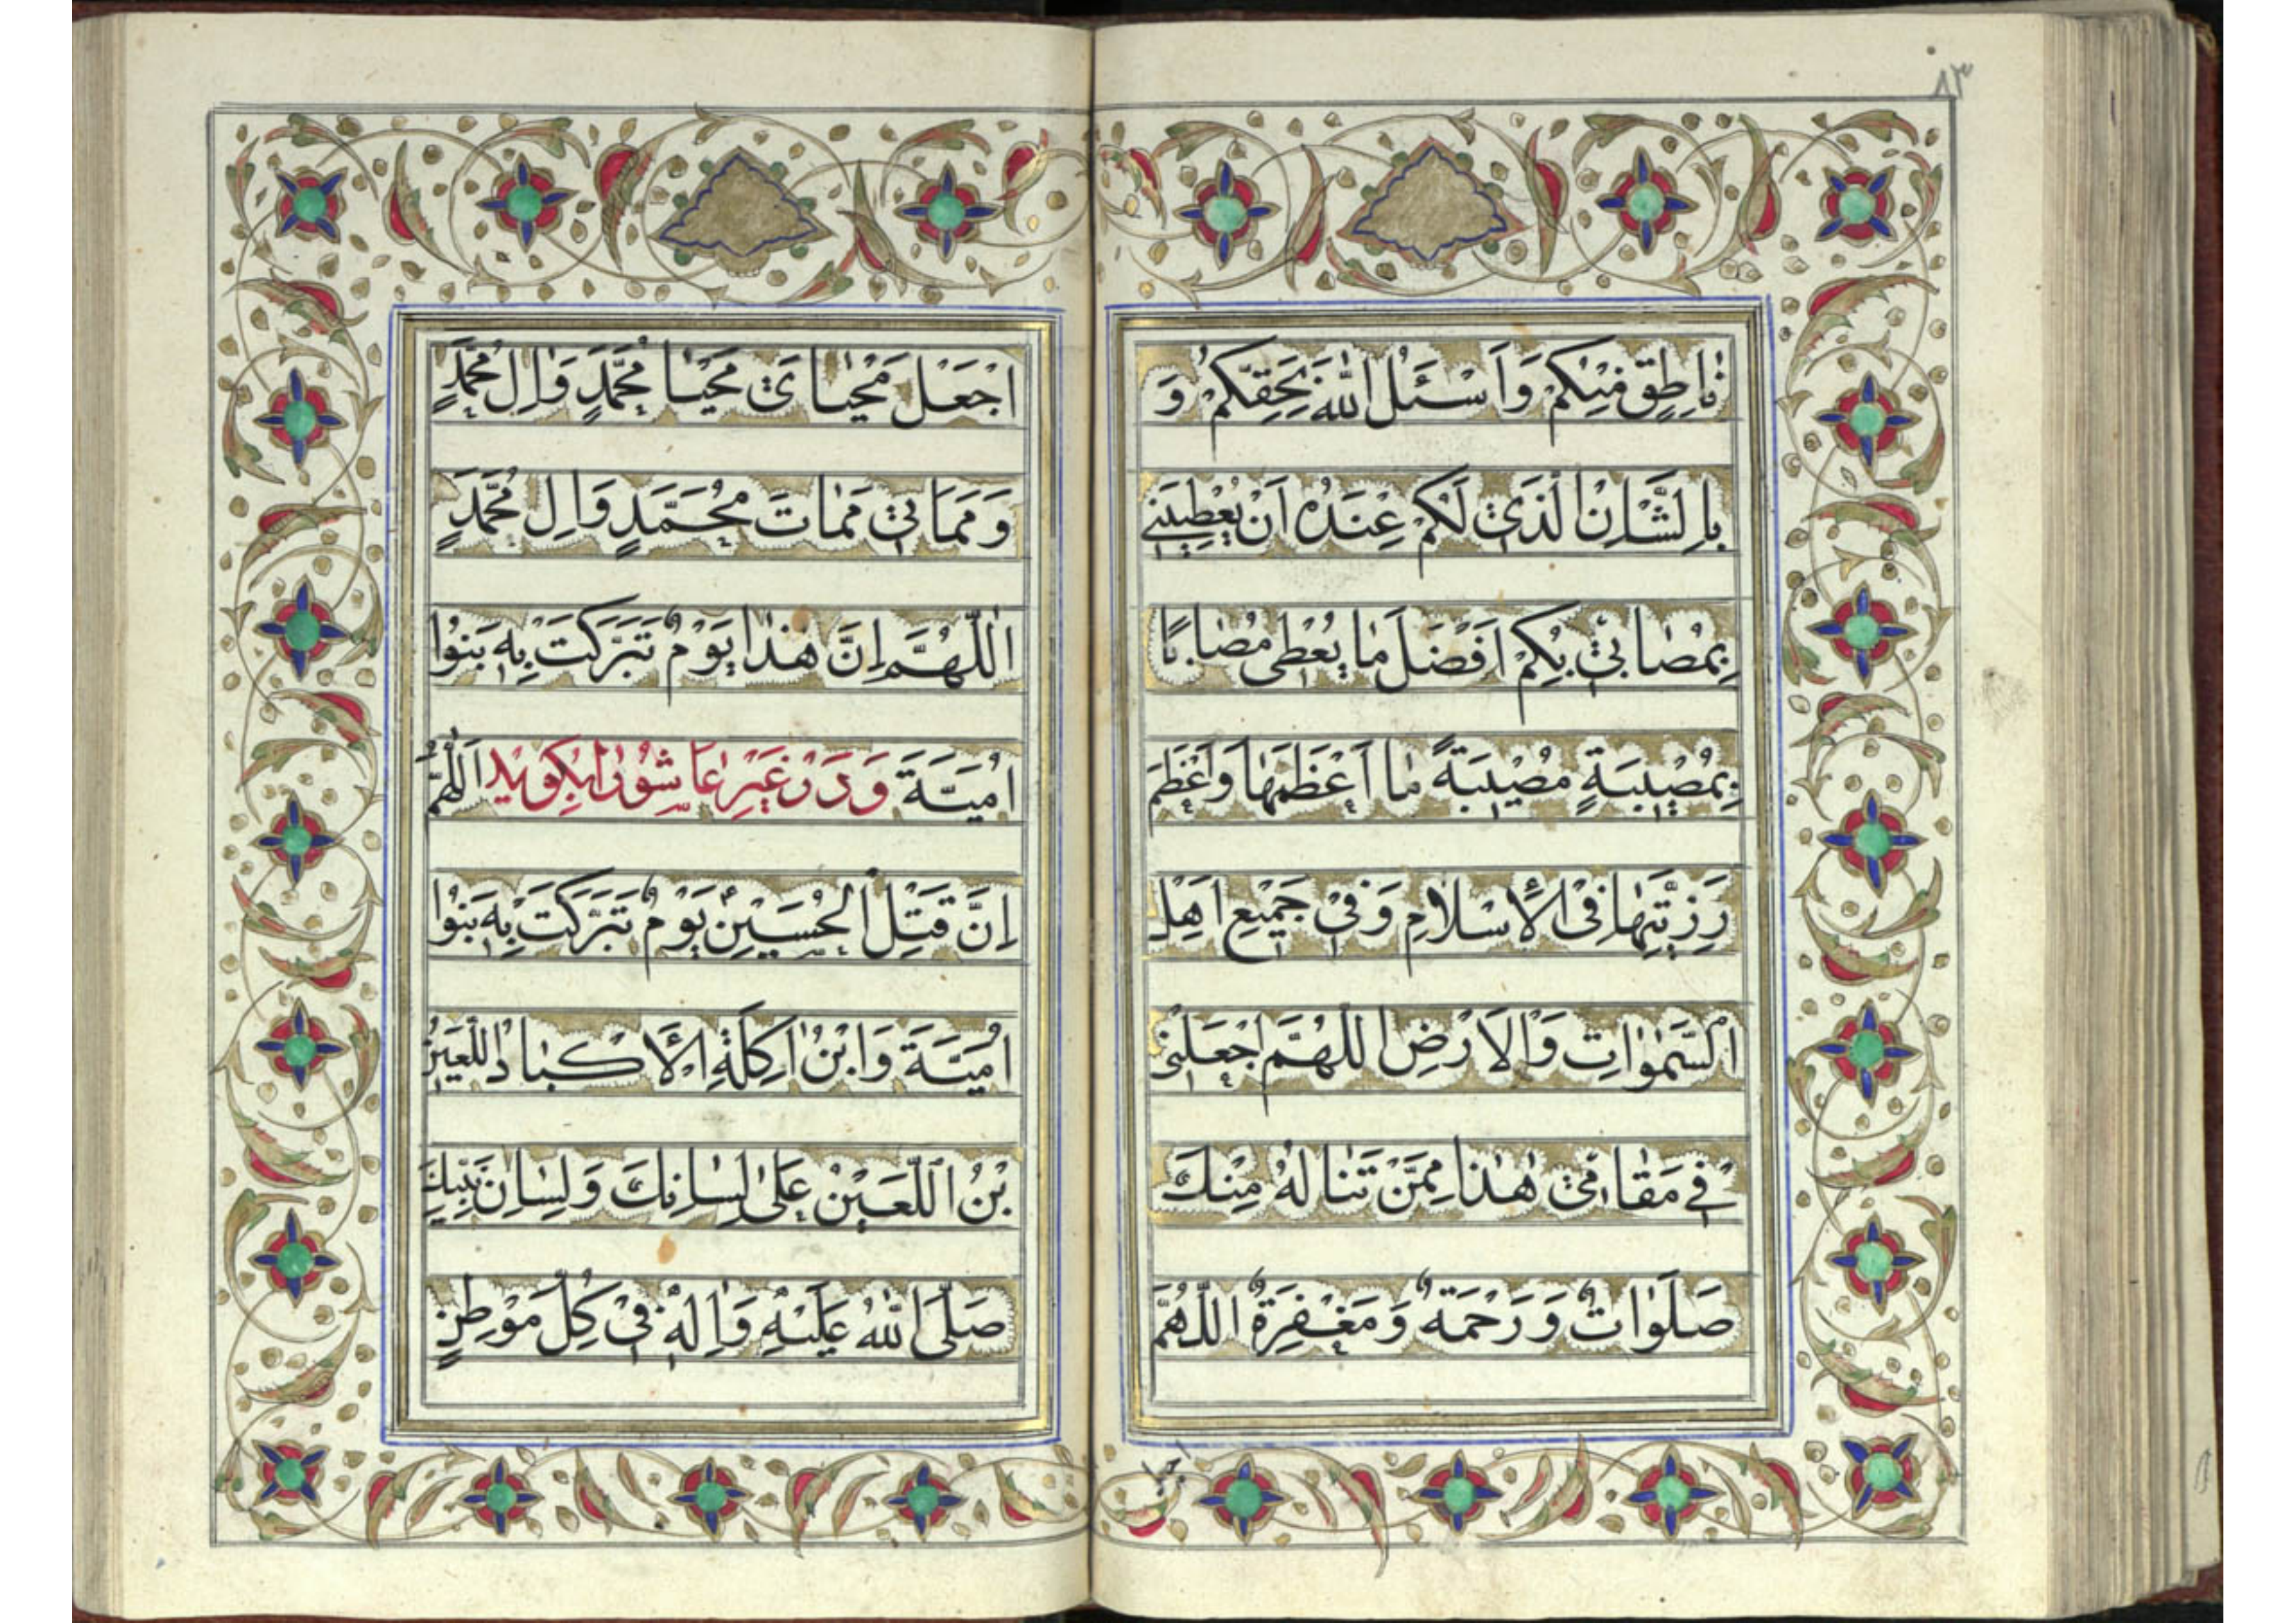 ٨٣
نٰاطِقٍ مِنْكُمْ وَاَسْئَلُ اللّٰهَ بِحَقِّكُمْ وَ
بِالشَّاْنِ الَّذىْ لَكُمْ عِنْدَهُ اَنْ يُعْطِيَنى
بِمُصٰابىْ بِكُمْ اَفْضَلَ مٰا يُعْطى مُصٰابًا
بِمُصيبَةٍ مُصيبَةً مٰا اَعْظَمَهٰا وَاَعْظَمَ
رَزِيَّتِهٰا فِى الْاِسْلامِ وَفىْ جَميْعِ اَهْلِ
السَّمٰوٰاتِ وَالْاَرْضِ اللّٰهُمَّ اجْعَلْنىْ
فى مَقٰامىْ هٰذٰا مِمَّنْ تَنٰالُهُ مِنْكَ
صَلَوٰاتٌ وَرَحْمَةٌ وَمَغْفِرَةٌ اللّٰهُمَّ
اجْعَلْ مَحْيٰاىَ مَحْيٰا مُحَمَّدٍ وَاٰلِ مُحَمَّدٍ
وَمَمَاتىْ مَمٰاتَ مُحَمَّدٍ وَاٰلِ مُحَمَّدٍ
اَللّٰهُمَّ اِنَّ هٰذٰا يَوْمٌ تَبَرَّكَتْ بِهِ بَنُوا
اُمَيَّةَ وَدَرْ غَيْرِ عٰاشُورٰا بِگويْد اَللّٰهُمَّ
اِنَّ قَتْلَ الْحُسَيْنِ يَوْمٌ تَبَرَّكَتْ بِهِ بَنُوا
اُمَيَّةَ وَابْنُ اٰكِلَةِ الْاَكْبٰادِ اللَّعيْنُ
بْنُ اللَّعيْنِ عَلىٰ لِسٰانِكَ وَلِسٰانِ نَبِيِّكَ
صَلَّى اللّٰهُ عَلَيْهِ وَاٰلِهِ فىْ كُلِّ مَوْطِنٍ